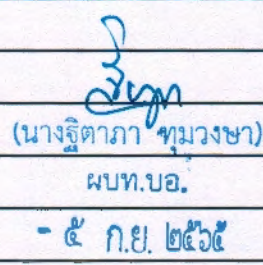 (นางฐิตาภา ทุมวงษา)
ผบท.บอ.
- ๕ ก.ย. ๒๕๖๕